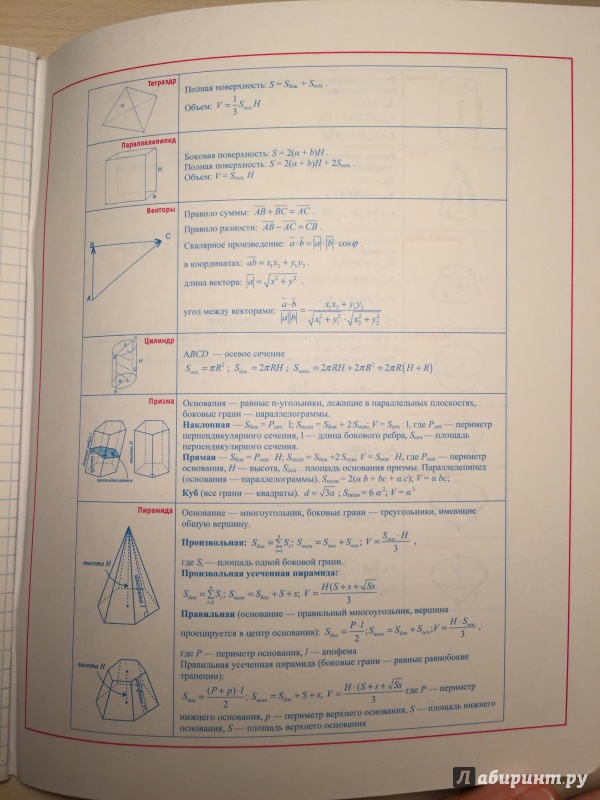 Тетраэдр
H
Полная поверхность: S = Sбок + Sосн .
Объем: V = 1/3 Sосн H
Параллелепипед
H
a
Боковая поверхность: S = 2(a + b)H .
Полная поверхность: S = 2(a + b)H + 2Sосн .
Объем: V = Sосн H
Векторы
B
C
A
Правило суммы: AB + BC = AC .
Правило разности: AB − AC = CB .
Скалярное произведение: a · b = |a| · |b| · cos φ .
в координатах: ab = x₁x₂ + y₁y₂ .
длина вектора: |a| = √(x² + y²) .
угол между векторами: (a · b)/(|a||b|) = (x₁x₂ + y₁y₂)/(√(x₁² + y₁²) · √(x₂² + y₂²))
Цилиндр
H
ABCD — осевое сечение
Sосн = πR² ; Sбок = 2πRH ; Sполн = 2πRH + 2πR² = 2πR(H + R)
Призма
высота H
Основания — равные n-угольники, лежащие в параллельных плоскостях,
боковые грани — параллелограммы.
Наклонная — Sбок = Pсеч · l; Sполн = Sбок + 2·Sосн; V = Sсеч · l, где Pсеч — периметр
перпендикулярного сечения, l — длина бокового ребра, Sсеч — площадь
перпендикулярного сечения.
Прямая — Sбок = Pосн · H; Sполн = Sбок +2·Sосн; V = Sосн · H, где Pосн — периметр
основания, H — высота, Sосн – площадь основания призмы. Параллелепипед
(основания — параллелограммы). Sполн = 2(a b + bc + a c); V = a bc;
Куб (все грани — квадраты). d = √3a ; Sполн = 6 a²; V = a³
Пирамида
высота H
апофема l
Основание — многоугольник, боковые грани — треугольники, имеющие
общую вершину.
Произвольная: Sбок = ∑Sᵢ; Sполн = Sбок + Sосн; V = (Sосн · H)/3 ,
где Sᵢ — площадь одной боковой грани.
Произвольная усеченная пирамида:
Sбок = ∑Sᵢ; Sполн = Sбок + S + s; V = H(S + s + √Ss)/3 .
Правильная (основание — правильный многоугольник, вершина
проецируется в центр основания): Sбок = (P · l)/2 ; Sполн = Sбок + Sосн; V = (H · Sосн)/3 ,
где P — периметр основания, l — апофема
Правильная усеченная пирамида (боковые грани — равные равнобокие
трапеции):
высота H
Sбок = ((P + p) · l)/2 ; Sполн = Sбок + S + s; V = H · (S + s + √Ss)/3 где P — периметр
нижнего основания, p — периметр верхнего основания, S — площадь нижнего
основания, S — площадь верхнего основания
Лабиринт.ру